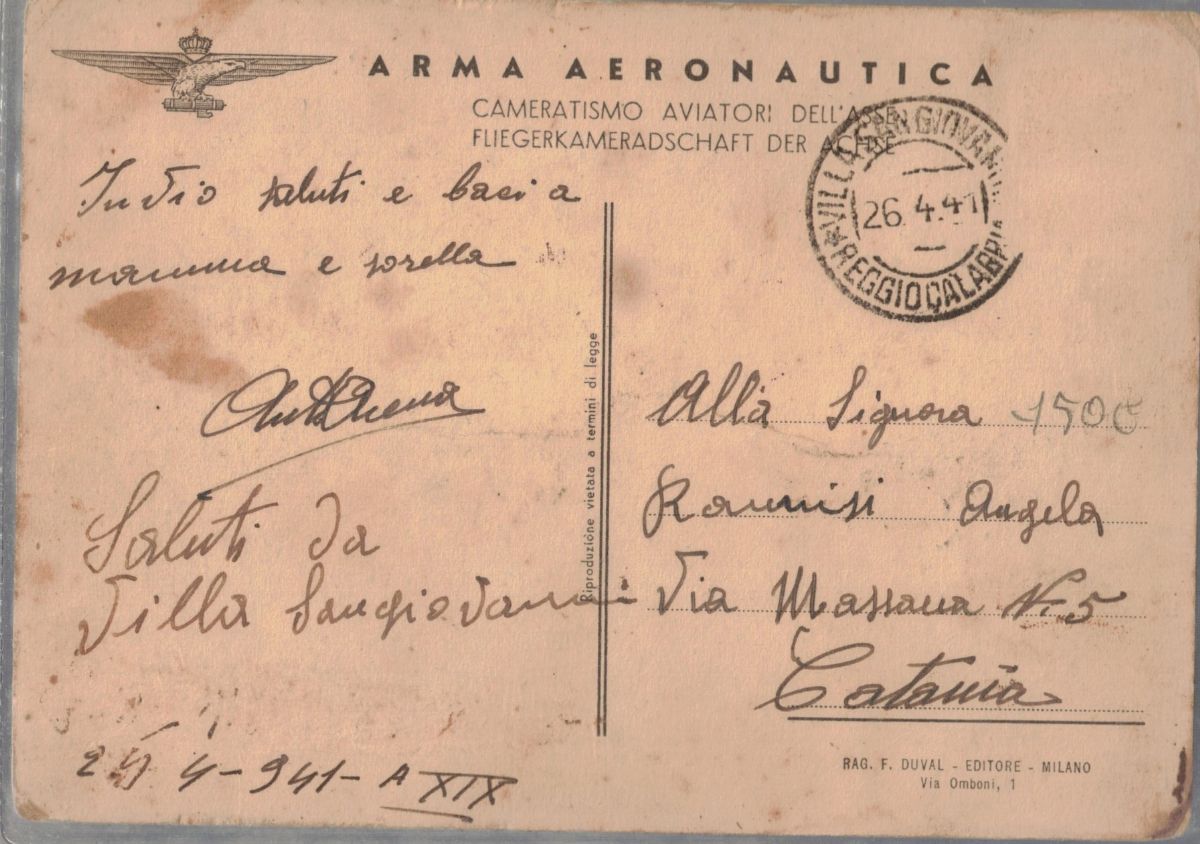 ARMA AERONAUTICA
CAMERATISMO AVIATORI DELL'ASSE
FLIEGERKAMERADSCHAFT DER ACHSE
VILLA SAN GIOVANNI
26.4.41
REGGIO CALABRIA
Invio saluti e baci a
mamma e sorella
Saluti da
Villa Sangiovanni
4-941- A XIX
Riproduzione vietata a termini di legge
Alla Signora
1500
Rannisi Angela
Via Massaua N. 5
Catania
RAG. F. DUVAL - EDITORE - MILANO
Via Omboni, 1